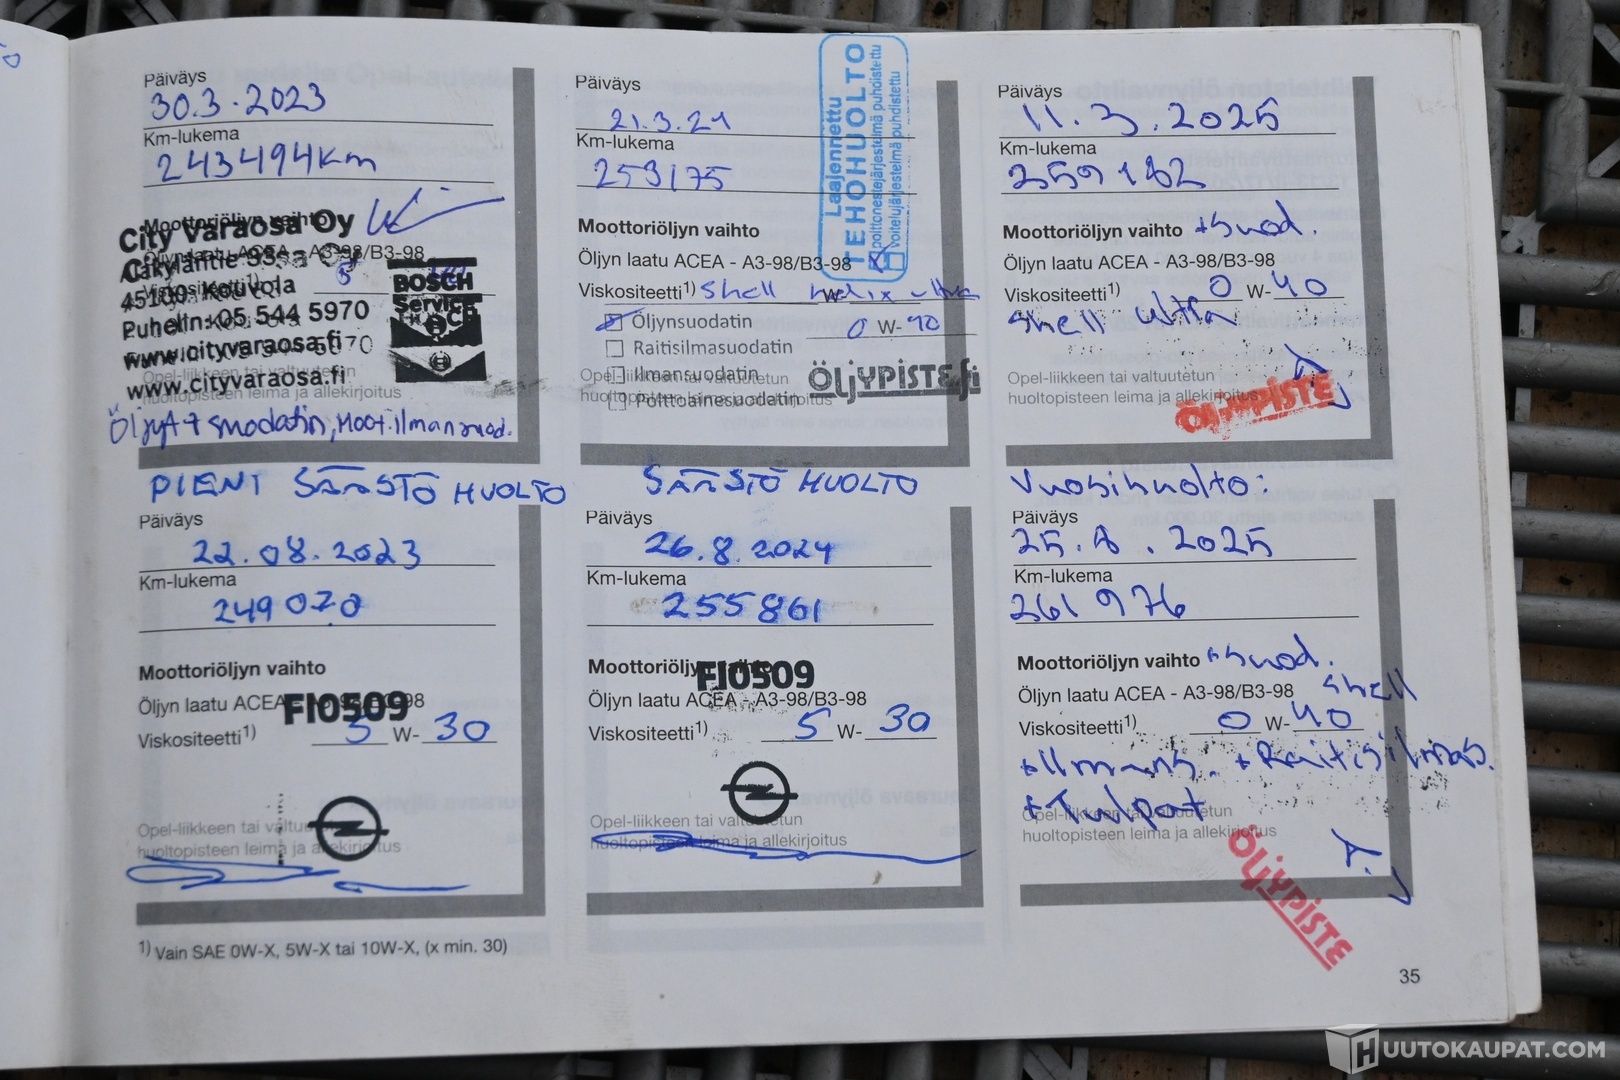 Päiväys
30.3.2023
Km-lukema
243494km
Moottoriöljyn vaihto
City Varaosa Oy
Öljyn laatu ACEA - A3-98/B3-98
45100 Kouvola
Puhelin: 05 544 5970
www.cityvaraosa.fi
www.cityvaraosa.fi
BOSCH
Service
Opel-liikkeen tai valtuutetun
huoltopisteen leima ja allekirjoitus
Öljyt + suodatin, Moot.ilmansuod.
Päiväys
21.3.24
Km-lukema
253175
Laajennettu
TEHOHUOLTO
polttonestejärjestelmä puhdistettu
voitelujärjestelmä puhdistettu
Moottoriöljyn vaihto
Öljyn laatu ACEA - A3-98/B3-98
Viskositeetti1) Shell Helix ultra
Öljynsuodatin 0 W-40
Raitisilmasuodatin
Ilmansuodatin
Polttoainesuodatin
Opel-liikkeen tai valtuutetun
huoltopisteen leima ja allekirjoitus
ÖLJYPISTE.fi
Päiväys
11.3.2025
Km-lukema
259182
Moottoriöljyn vaihto +suod.
Öljyn laatu ACEA - A3-98/B3-98
Viskositeetti1) 0 W-40
Shell Ultra
Opel-liikkeen tai valtuutetun
huoltopisteen leima ja allekirjoitus
ÖLJYPISTE
PIENI SÄÄSTÖ HUOLTO
Päiväys
22.08.2023
Km-lukema
249070
Moottoriöljyn vaihto
Öljyn laatu ACEA - A3-98/B3-98
FI0509
Viskositeetti1) 5 W- 30
Opel-liikkeen tai valtuutetun
huoltopisteen leima ja allekirjoitus
SÄÄSTÖ HUOLTO
Päiväys
26.8.2024
Km-lukema
255861
Moottoriöljyn vaihto
FI0509
Öljyn laatu ACEA - A3-98/B3-98
Viskositeetti1) 5 W- 30
Opel-liikkeen tai valtuutetun
huoltopisteen leima ja allekirjoitus
Vuosihuolto:
Päiväys
25.8.2025
Km-lukema
261976
Moottoriöljyn vaihto +suod.
Öljyn laatu ACEA - A3-98/B3-98 Shell
Viskositeetti1) 0 W-40
+Ilmans. +Raitisilmas.
+Tulpat
Opel-liikkeen tai valtuutetun
huoltopisteen leima ja allekirjoitus
ÖLJYPISTE
1) Vain SAE 0W-X, 5W-X tai 10W-X, (x min. 30)
35
HUUTOKAUPAT.COM